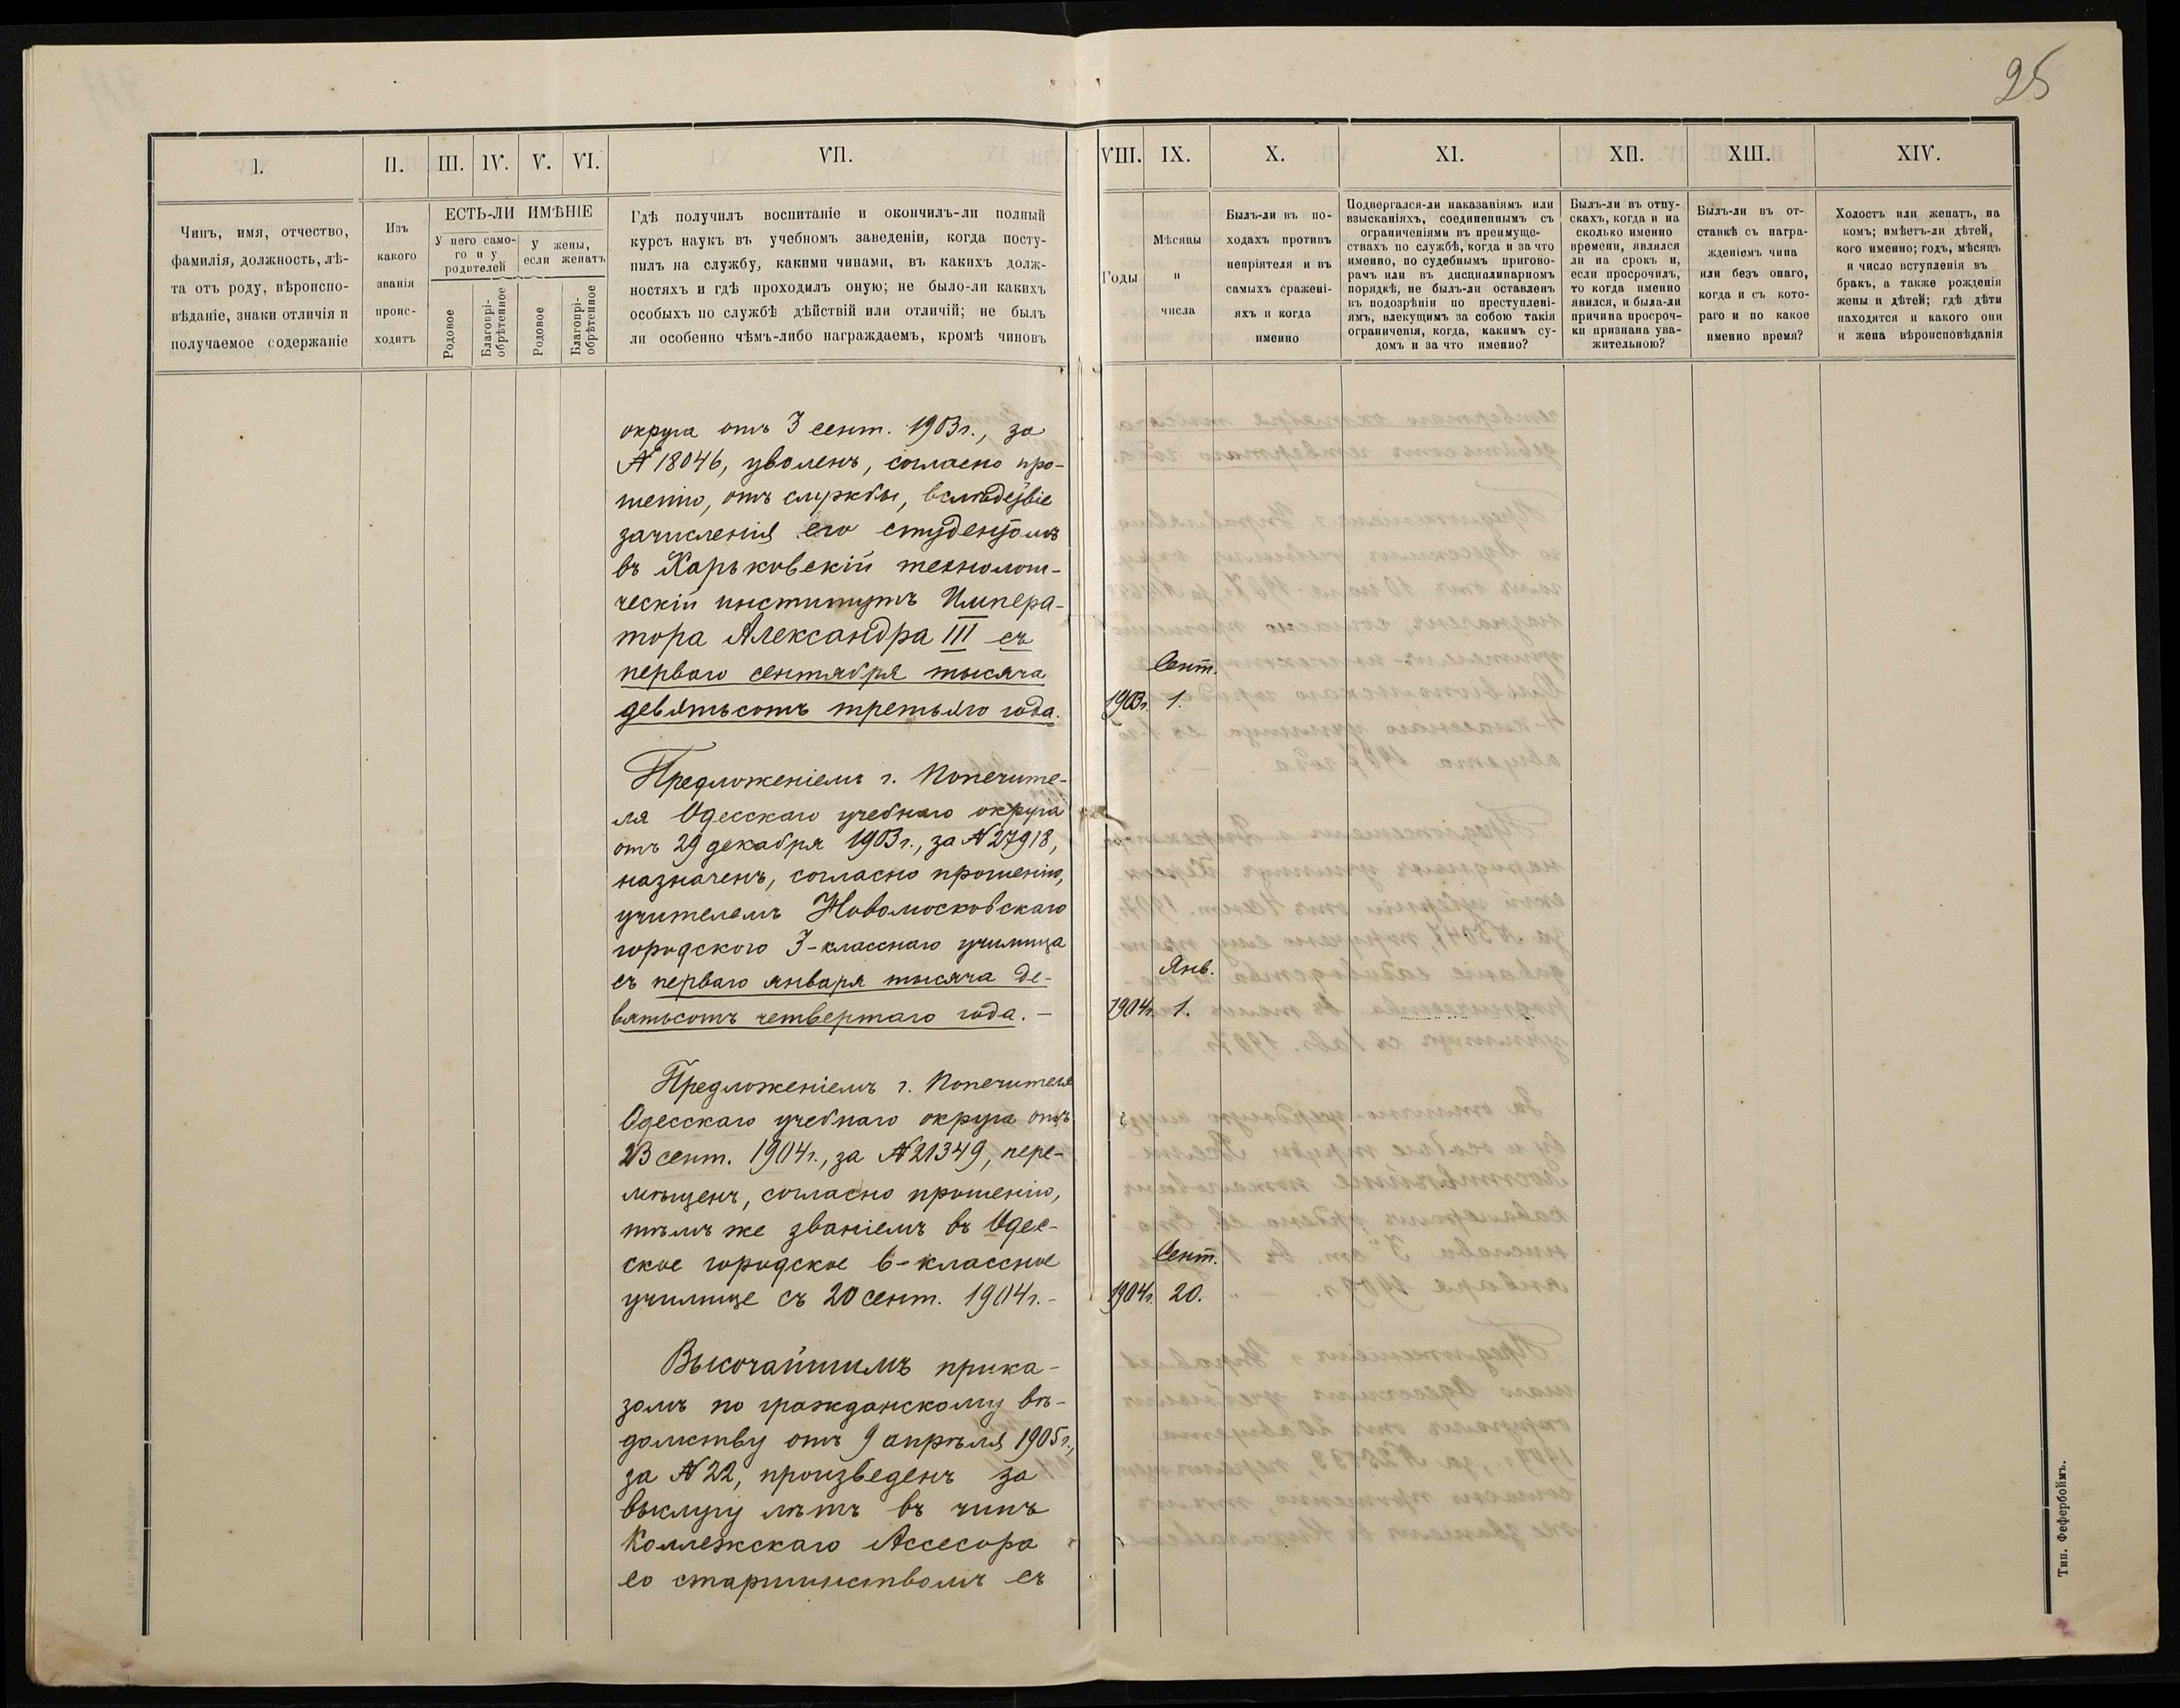 25
I.
II.
III.
IV.
V.
VI.
VII.
VIII.
IX.
X.
XI.
XII.
XIII.
XIV.
Чинъ, имя, отчество,
фамилія, должность, лѣ-
та отъ роду, вѣроиспо-
вѣданіе, знаки отличія и
получаемое содержаніе
Изъ
какого
званія
проис-
ходитъ
ЕСТЬ-ЛИ ИМѢНІЕ
У него само-
го и у
родителей
у жены,
если женатъ
Родовое
Благопрі-
обрѣтенное
Родовое
Благопрі-
обрѣтенное
Гдѣ получилъ воспитаніе и окончилъ-ли полный
курсъ наукъ въ учебномъ заведеніи, когда посту-
пилъ на службу, какими чинами, въ какихъ долж-
ностяхъ и гдѣ проходилъ оную; не было-ли какихъ
особыхъ по службѣ дѣйствій или отличій; не былъ
ли особенно чѣмъ-либо награждаемъ, кромѣ чиновъ
Годы
Мѣсяцы
и
числа
Былъ-ли въ по-
ходахъ противъ
непріятеля и въ
самыхъ сражені-
яхъ и когда
именно
Подвергался-ли наказаніямъ или
взысканіяхъ, соединеннымъ съ
ограниченіями въ преимуще-
ствахъ по службѣ, когда и за что
именно, по судебнымъ пригово-
рамъ или въ дисциплинарномъ
порядкѣ, не былъ-ли оставленъ
въ подозрѣніи по преступлені-
ямъ, влекущимъ за собою такія
ограниченія, когда, какимъ су-
домъ и за что именно?
Былъ-ли въ отпу-
скахъ, когда и на
сколько именно
времени, являлся
ли на срокъ и,
если просрочилъ,
то когда именно
явился, и была-ли
причина просроч-
ки признана ува-
жительною?
Былъ-ли въ от-
ставкѣ съ награ-
жденіемъ чина
или безъ онаго,
когда и съ кото-
раго и по какое
именно время?
Холостъ или женатъ, на
комъ; имѣетъ-ли дѣтей,
кого именно; годъ, мѣсяцъ
и число вступленія въ
бракъ, а также рожденія
жены и дѣтей; гдѣ дѣти
находятся и какого они
и жена вѣроисповѣданія
округа отъ 3 сент. 1903г., за
№ 18046, уволенъ, согласно про-
шенію, отъ службы, вслѣдствіе
зачисленія его студентомъ
въ Харьковскій технологи-
ческій институтъ Импера-
тора Александра III съ
перваго сентября тысяча
девятьсотъ третьяго года.
Сент.
1903г. 1.
Предложеніемъ г. Попечите-
ля Одесскаго учебнаго округа
отъ 29 декабря 1903г., за № 27918,
назначенъ, согласно прошенію,
учителемъ Новомосковскаго
городского 3-класснаго училища
съ перваго января тысяча де-
вятьсотъ четвертаго года. –
Янв.
1904г. 1.
Предложеніемъ г. Попечителя
Одесскаго учебнаго округа отъ
23 сент. 1904г., за № 21349, пере-
мѣщенъ, согласно прошенію,
тѣмъ же званіемъ въ Одес-
ское городское 6-классное
училище съ 20 сент. 1904г. –
Сент.
1904г. 20.
Высочайшимъ прика-
зомъ по гражданскому вѣ-
домству отъ 9 апрѣля 1905г.,
за № 22, произведенъ за
выслугу лѣтъ въ чинъ
Коллежскаго Ассесора
со старшинствомъ съ
Тип. Фефербоймъ.